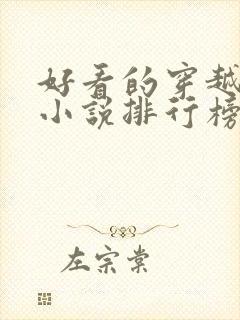 好看的穿越
小说排行榜
左宗棠